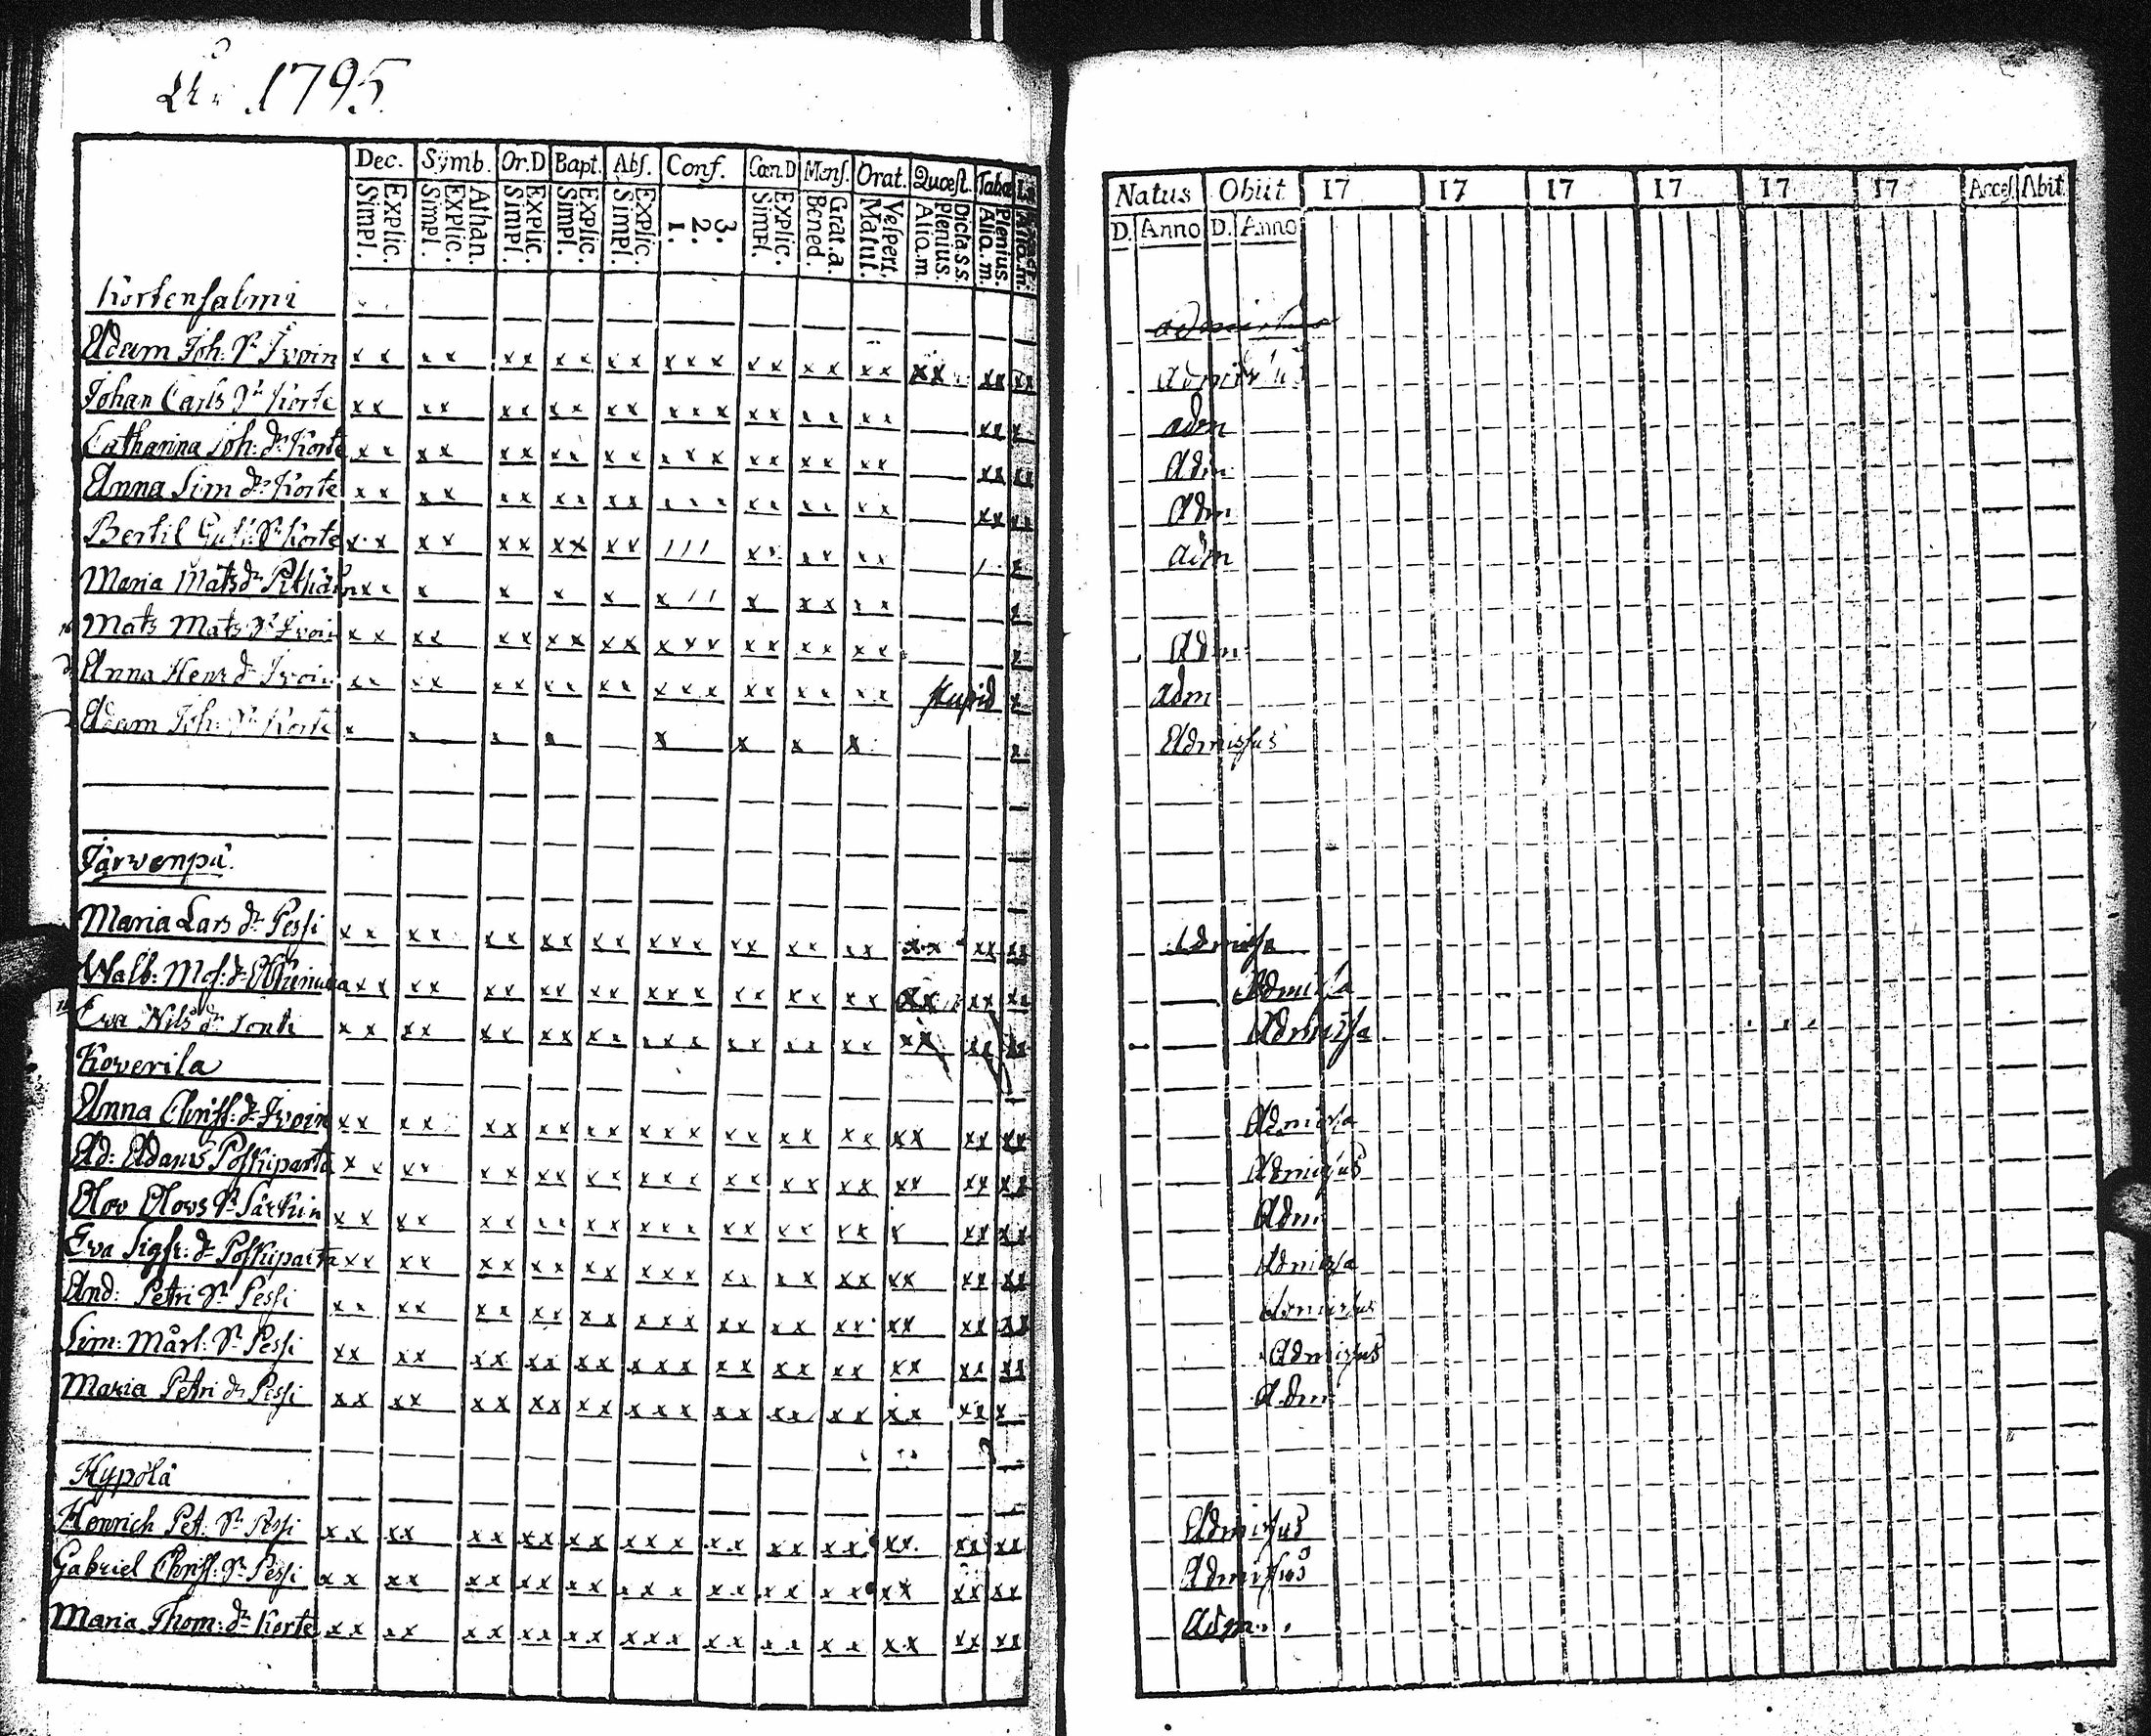 År 1795
Dec. Symb. Or.D Bapt. Abs. Conf. Cœn.D Mens. Orat. Quæst. Taba
Explic. Simpl. Athan. Explic. Simpl. Explic. Simpl. Explic. Simpl. Explic. Simpl. 3. 2. 1. Explic. Simpl. Grat. a. Bened. Vespert. Matut. Dicta s.s. Plenius. Aliq.m. Plenius. Aliq.m.
Kortensalmi
Adam Joh: Sn Ivoin xx xx xx xx xx xxx xx xx xx xx xx xx
Johan Carls Sn Korte xx xx xx xx xx xxx xx xx xx xx x
Catharina Joh: dr Korte xx xx xx xx xx xxx xx xx xx xx xx
Anna Sim dr Korte xx xx xx xx xx xxx xx xx xx xx xx
Bertil Sn Korte xx xx xx xx xx /// xx xx xx / x
Maria Mats dr xx x x x x x// x xx xx x
Mats Mats Sn Ivoin xx xx xx xx xx xxx xx xx xx x
Anna Henr dr Ivoin xx xx xx xx xx xxx xx xx xx stupid x
Adam Joh: Sn Korte x x x x x x x x x
Järwenpä.
Maria Lars dr Pessi xx xx xx xx xx xxx xx xx xx xx xx xx
Walb: dr xx xx xx xx xx xxx xx xx xx xx xx xx
Eva Nils dr xx xx xx xx xx xxx xx xx xx xx xx xx
Koverila
Anna Christ: dr Ivoin xx xx xx xx xx xxx xx xx xx xx xx xx
Ad: Adams Poskiparta xx xx xx xx xx xxx xx xx xx xx xx xx
Olov Olovs Sn Särkin xx xx xx xx xx xxx xx xx xx x xx xx
Eva Sigfr: dr Poskiparta xx xx xx xx xx xxx xx xx xx xx xx xx
And: Petri Sn Pessi xx xx xx xx xx xxx xx xx xx xx xx xx
Sim: Mårt: Sn Pessi xx xx xx xx xx xxx xx xx xx xx xx xx
Maria Petri dr Pessi xx xx xx xx xx xxx xx xx xx xx xx x
Hypölä
Henrich Pet: Sn Pessi xx xx xx xx xx xxx xx xx xx xx xx xx
Gabriel Christ: Sn Pessi xx xx xx xx xx xxx xx xx xx xx xx xx
Maria Thom: dr Korte xx xx xx xx xx xxx xx xx xx xx xx xx
Natus Obiit 17 17 17 17 17 17 Acces. Abit
D. Anno D. Anno
admissus
Admissus
adm
Adm
Adm
adm
Adm
adm
Admissus
Admissa
Admissa
Admissa
Admissa
Admissus
Adm
Admissa
Admissus
Admissus
Adm
Admissus
Admissus
adm